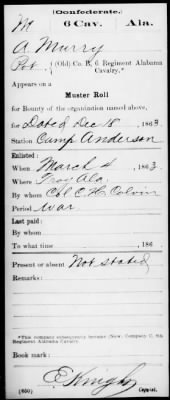 (Confederate.)
M
6 Cav.
Ala.
A Murry
Pvt., (Old) Co. B, 6 Regiment Alabama
Cavalry.*
Appears on a
Muster Roll
for Bounty of the organization named above,
for Dated Dec 18, 1863.
Station Camp Anderson
Enlisted:
When March 4, 1863.
Where Troy Ala
By whom Col C. H. Colvin
Period War
Last paid:
By whom
To what time, 186 .
Present or absent Not stated
Remarks:
*This company subsequently became (New) Company C, 6th
Regiment Alabama Cavalry.
Book mark:
E Knight
(650)
Copyist.